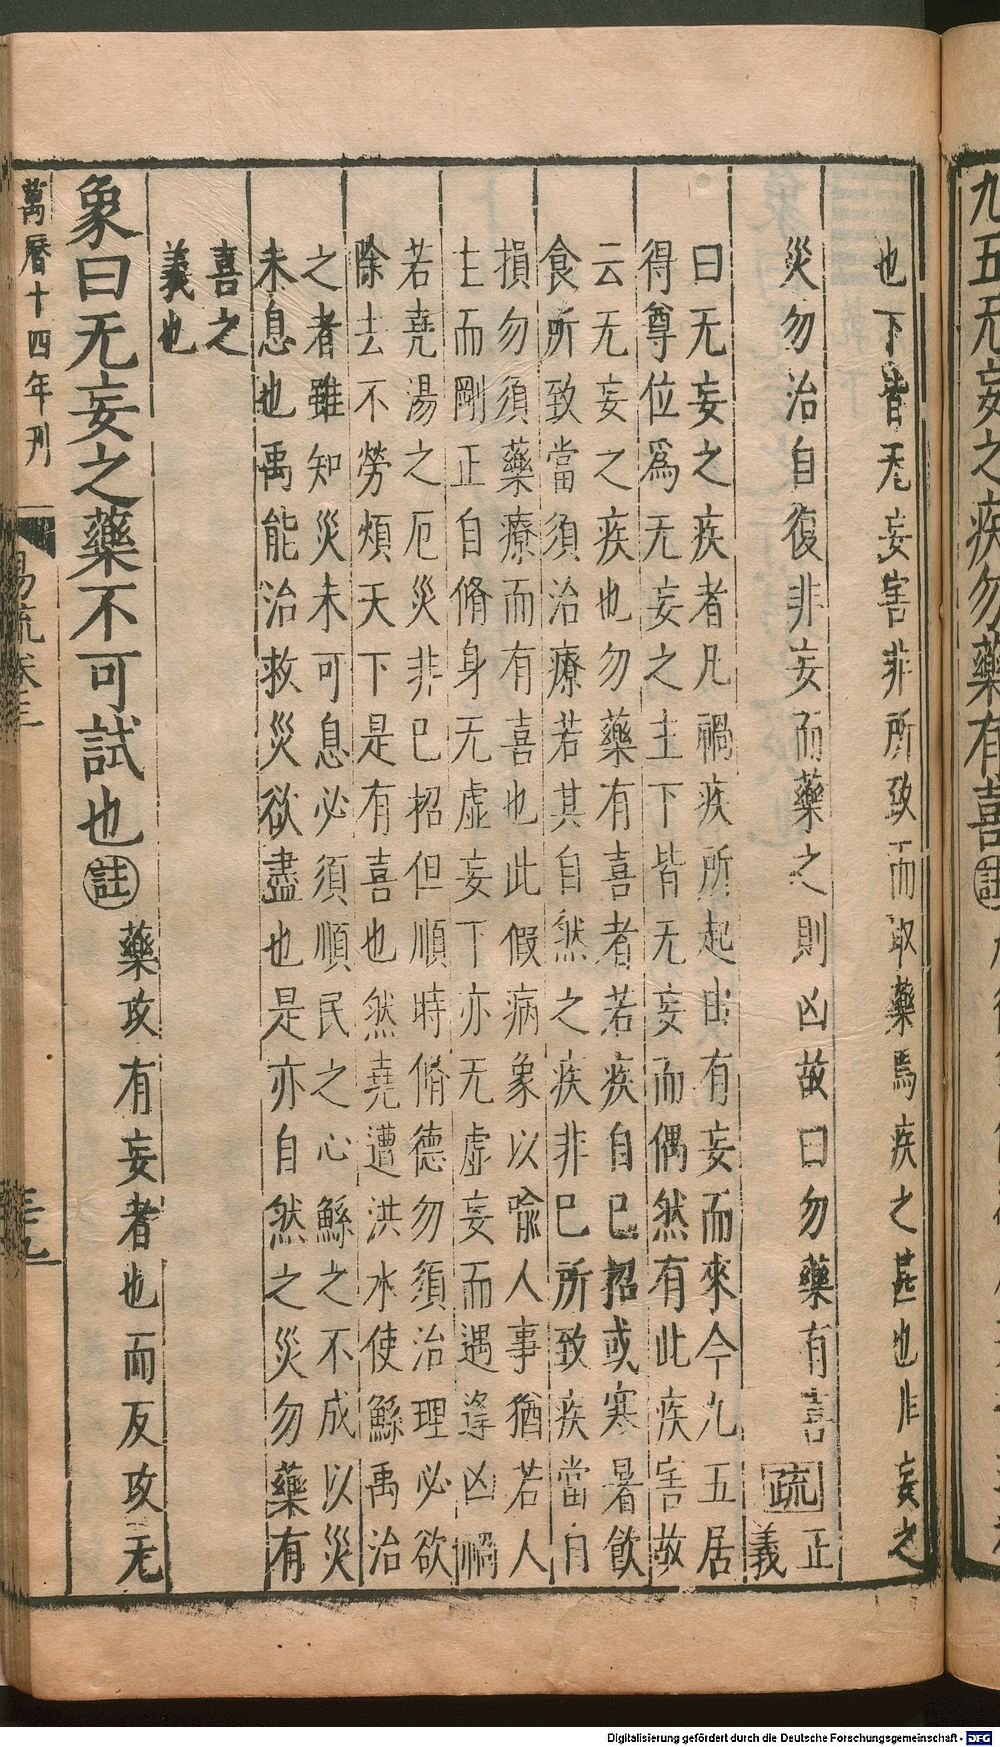 九五无妄之疾勿藥有喜註
也下皆无妄害非所致而取藥焉疾之甚也非妄之
災勿治自復非妄而藥之則凶故曰勿藥有喜疏正
義
曰无妄之疾者凡禍疾所起由有妄而來今九五居
得尊位爲无妄之主下皆无妄而偶然有此疾害故
云无妄之疾也勿藥有喜者若疾自已招或寒暑飮
食所致當須治療若其自然之疾非已所致疾當自
損勿須藥療而有喜也此假病象以喩人事猶若人
主而剛正自脩身无虛妄下亦无虛妄而遇逢凶禍
若堯湯之厄災非已招但順時脩德勿須治理必欲
除去不勞煩天下是有喜也然堯遭洪水使鯀禹治
之者雖知災未可息必須順民之心鯀之不成以災
未息也禹能治救災欲盡也是亦自然之災勿藥有
喜之
義也
象曰无妄之藥不可試也註藥攻有妄者也而反攻无
萬曆十四年刊
易疏卷三
三十九
Digitalisierung gefördert durch die Deutsche Forschungsgemeinschaft - DFG